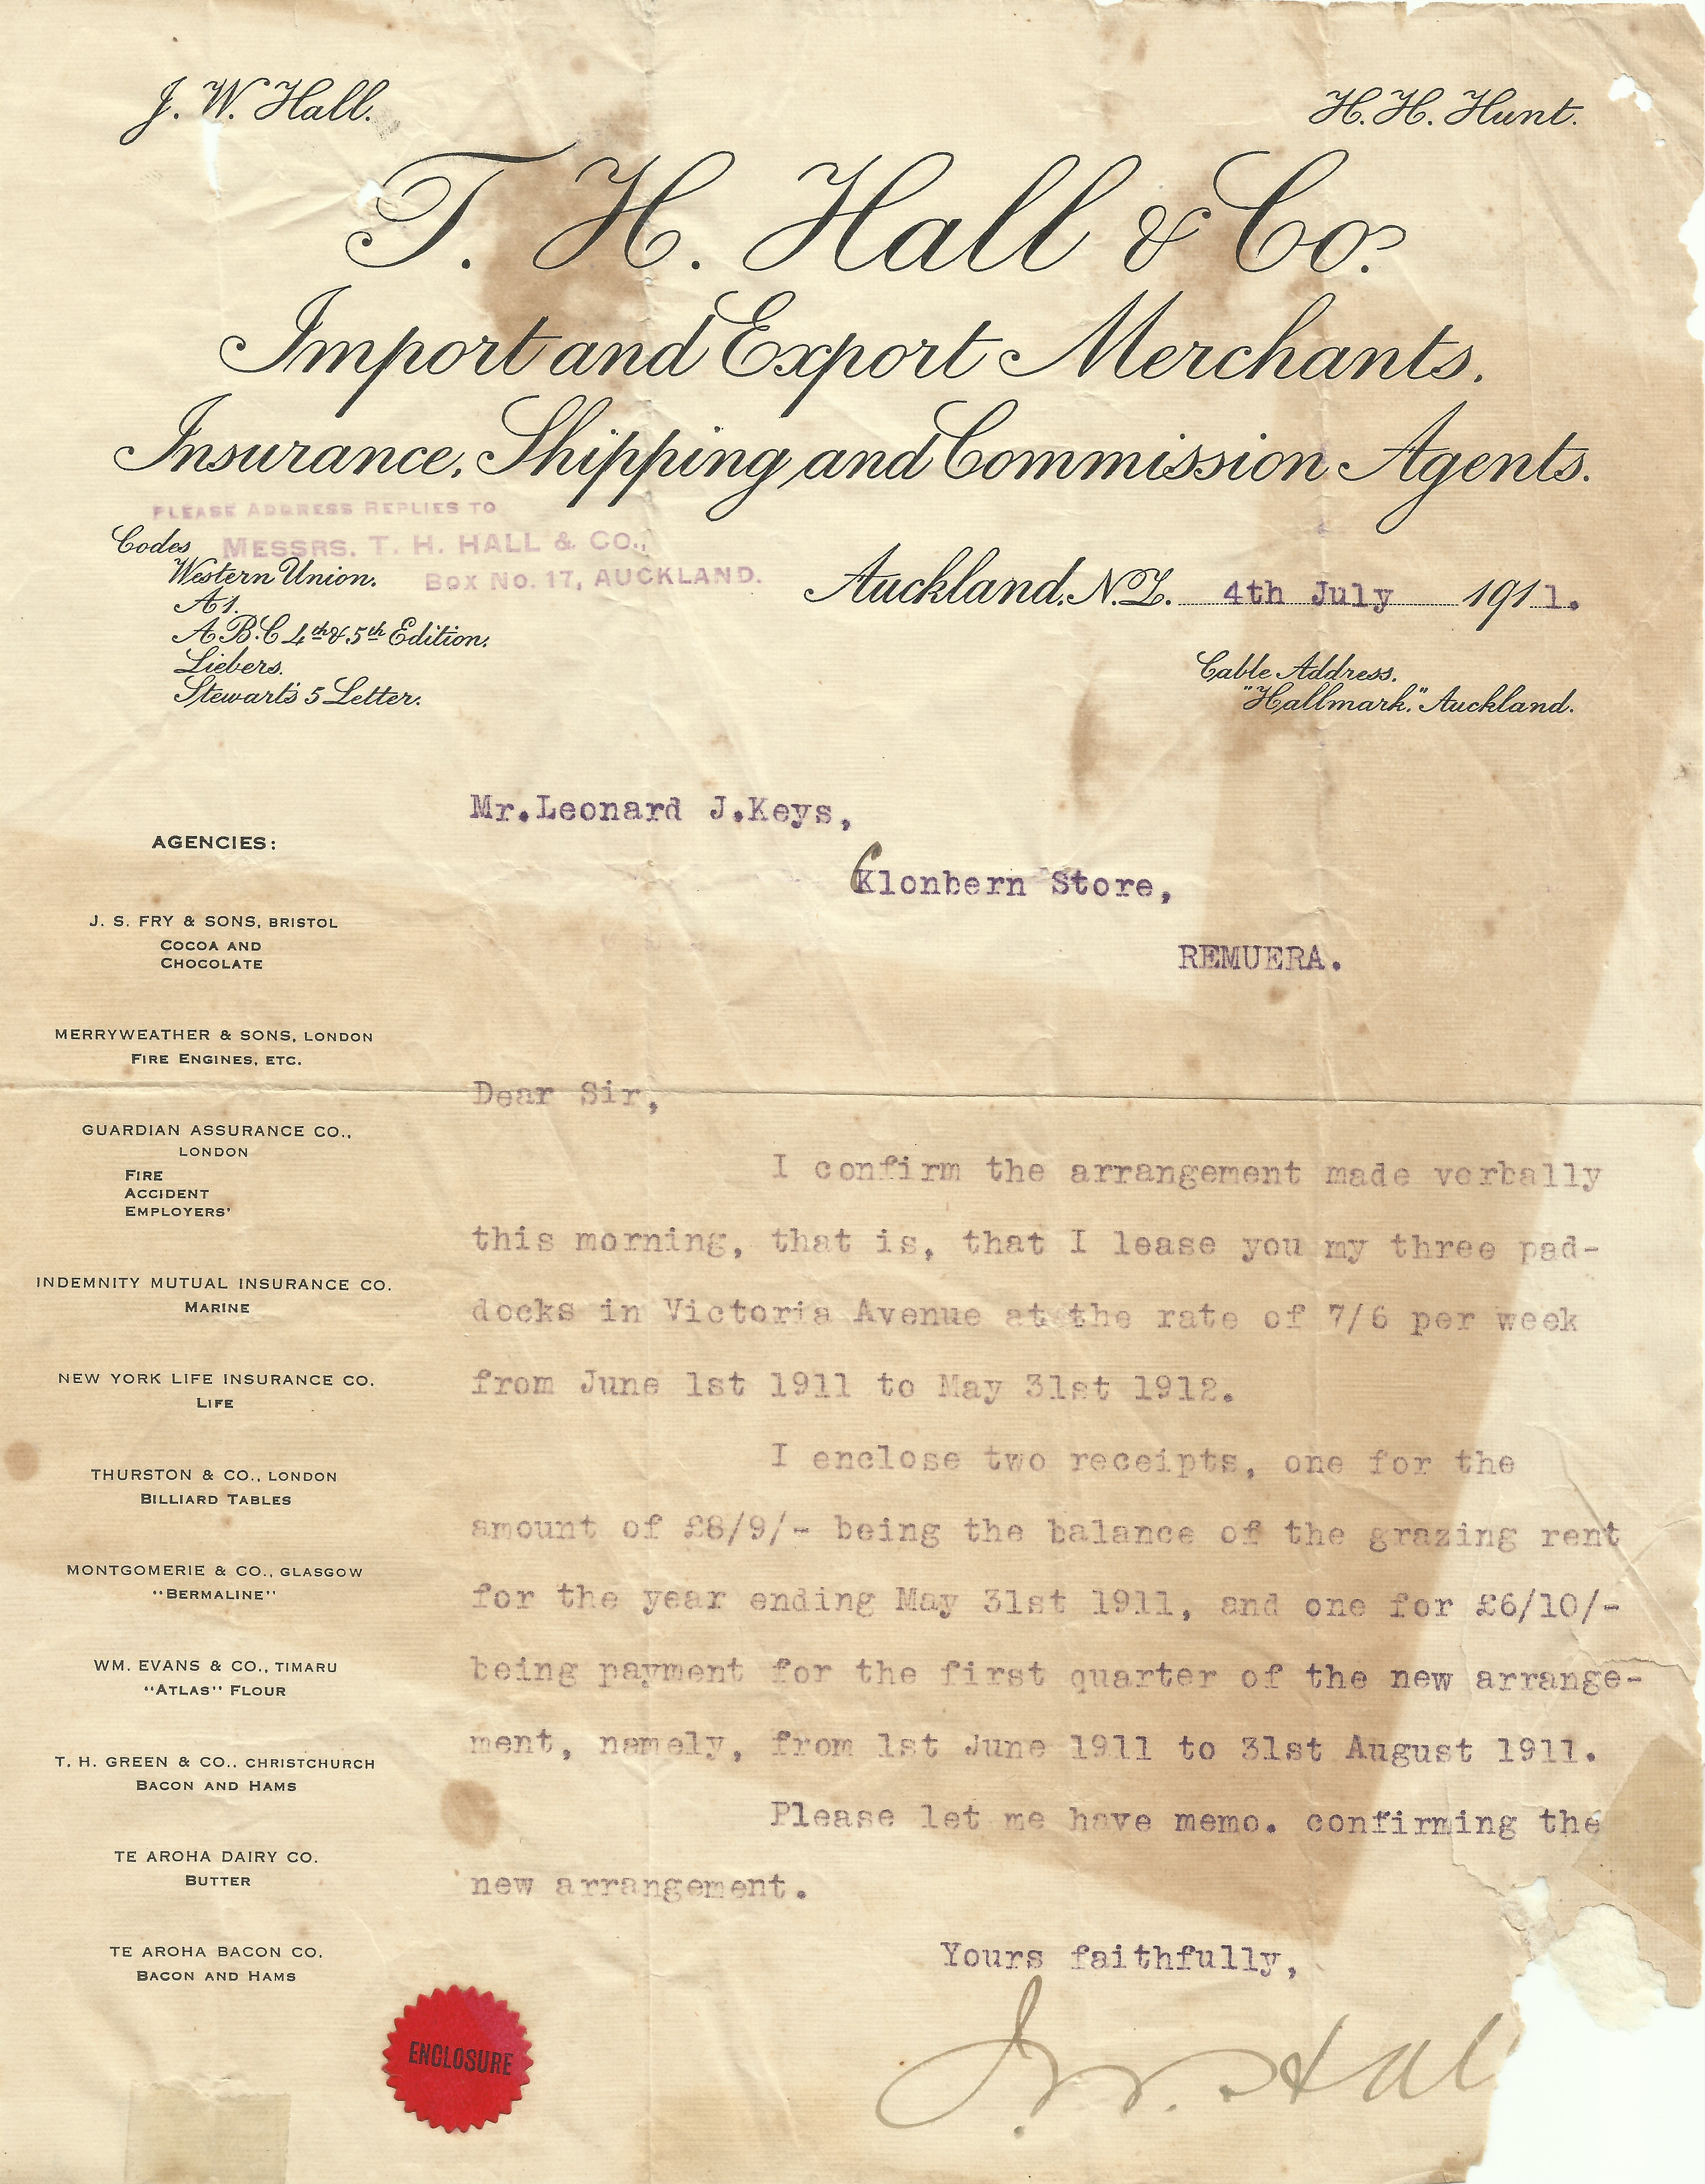 J. W. Hall.
H. H. Hunt.
T. H. Hall & Co.
Import and Export Merchants.
Insurance, Shipping and Commission Agents.
PLEASE ADDRESS REPLIES TO
MESSRS. T. H. HALL & CO.,
BOX NO. 17, AUCKLAND.
Codes
Western Union.
A1.
A.B.C 4th & 5th Edition.
Liebers.
Stewart's 5 Letter.
Auckland, N.Z. 4th July 1911.
Cable Address.
"Hallmark." Auckland.
Mr.Leonard J.Keys,
Clonbern Store,
REMUERA.
AGENCIES:
J. S. FRY & SONS, BRISTOL
COCOA AND
CHOCOLATE
MERRYWEATHER & SONS, LONDON
FIRE ENGINES, ETC.
GUARDIAN ASSURANCE CO.,
LONDON
FIRE
ACCIDENT
EMPLOYERS'
INDEMNITY MUTUAL INSURANCE CO.
MARINE
NEW YORK LIFE INSURANCE CO.
LIFE
THURSTON & CO., LONDON
BILLIARD TABLES
MONTGOMERIE & CO., GLASGOW
"BERMALINE"
WM. EVANS & CO., TIMARU
"ATLAS" FLOUR
T. H. GREEN & CO., CHRISTCHURCH
BACON AND HAMS
TE AROHA DAIRY CO.
BUTTER
TE AROHA BACON CO.
BACON AND HAMS
Dear Sir,
I confirm the arrangement made verbally
this morning, that is, that I lease you my three pad-
docks in Victoria Avenue at the rate of 7/6 per week
from June 1st 1911 to May 31st 1912.
I enclose two receipts, one for the
amount of £8/9/- being the balance of the grazing rent
for the year ending May 31st 1911, and one for £6/10/-
being payment for the first quarter of the new arrange-
ment, namely, from 1st June 1911 to 31st August 1911.
Please let me have memo. confirming the
new arrangement.
Yours faithfully,
J. W. Hal
ENCLOSURE